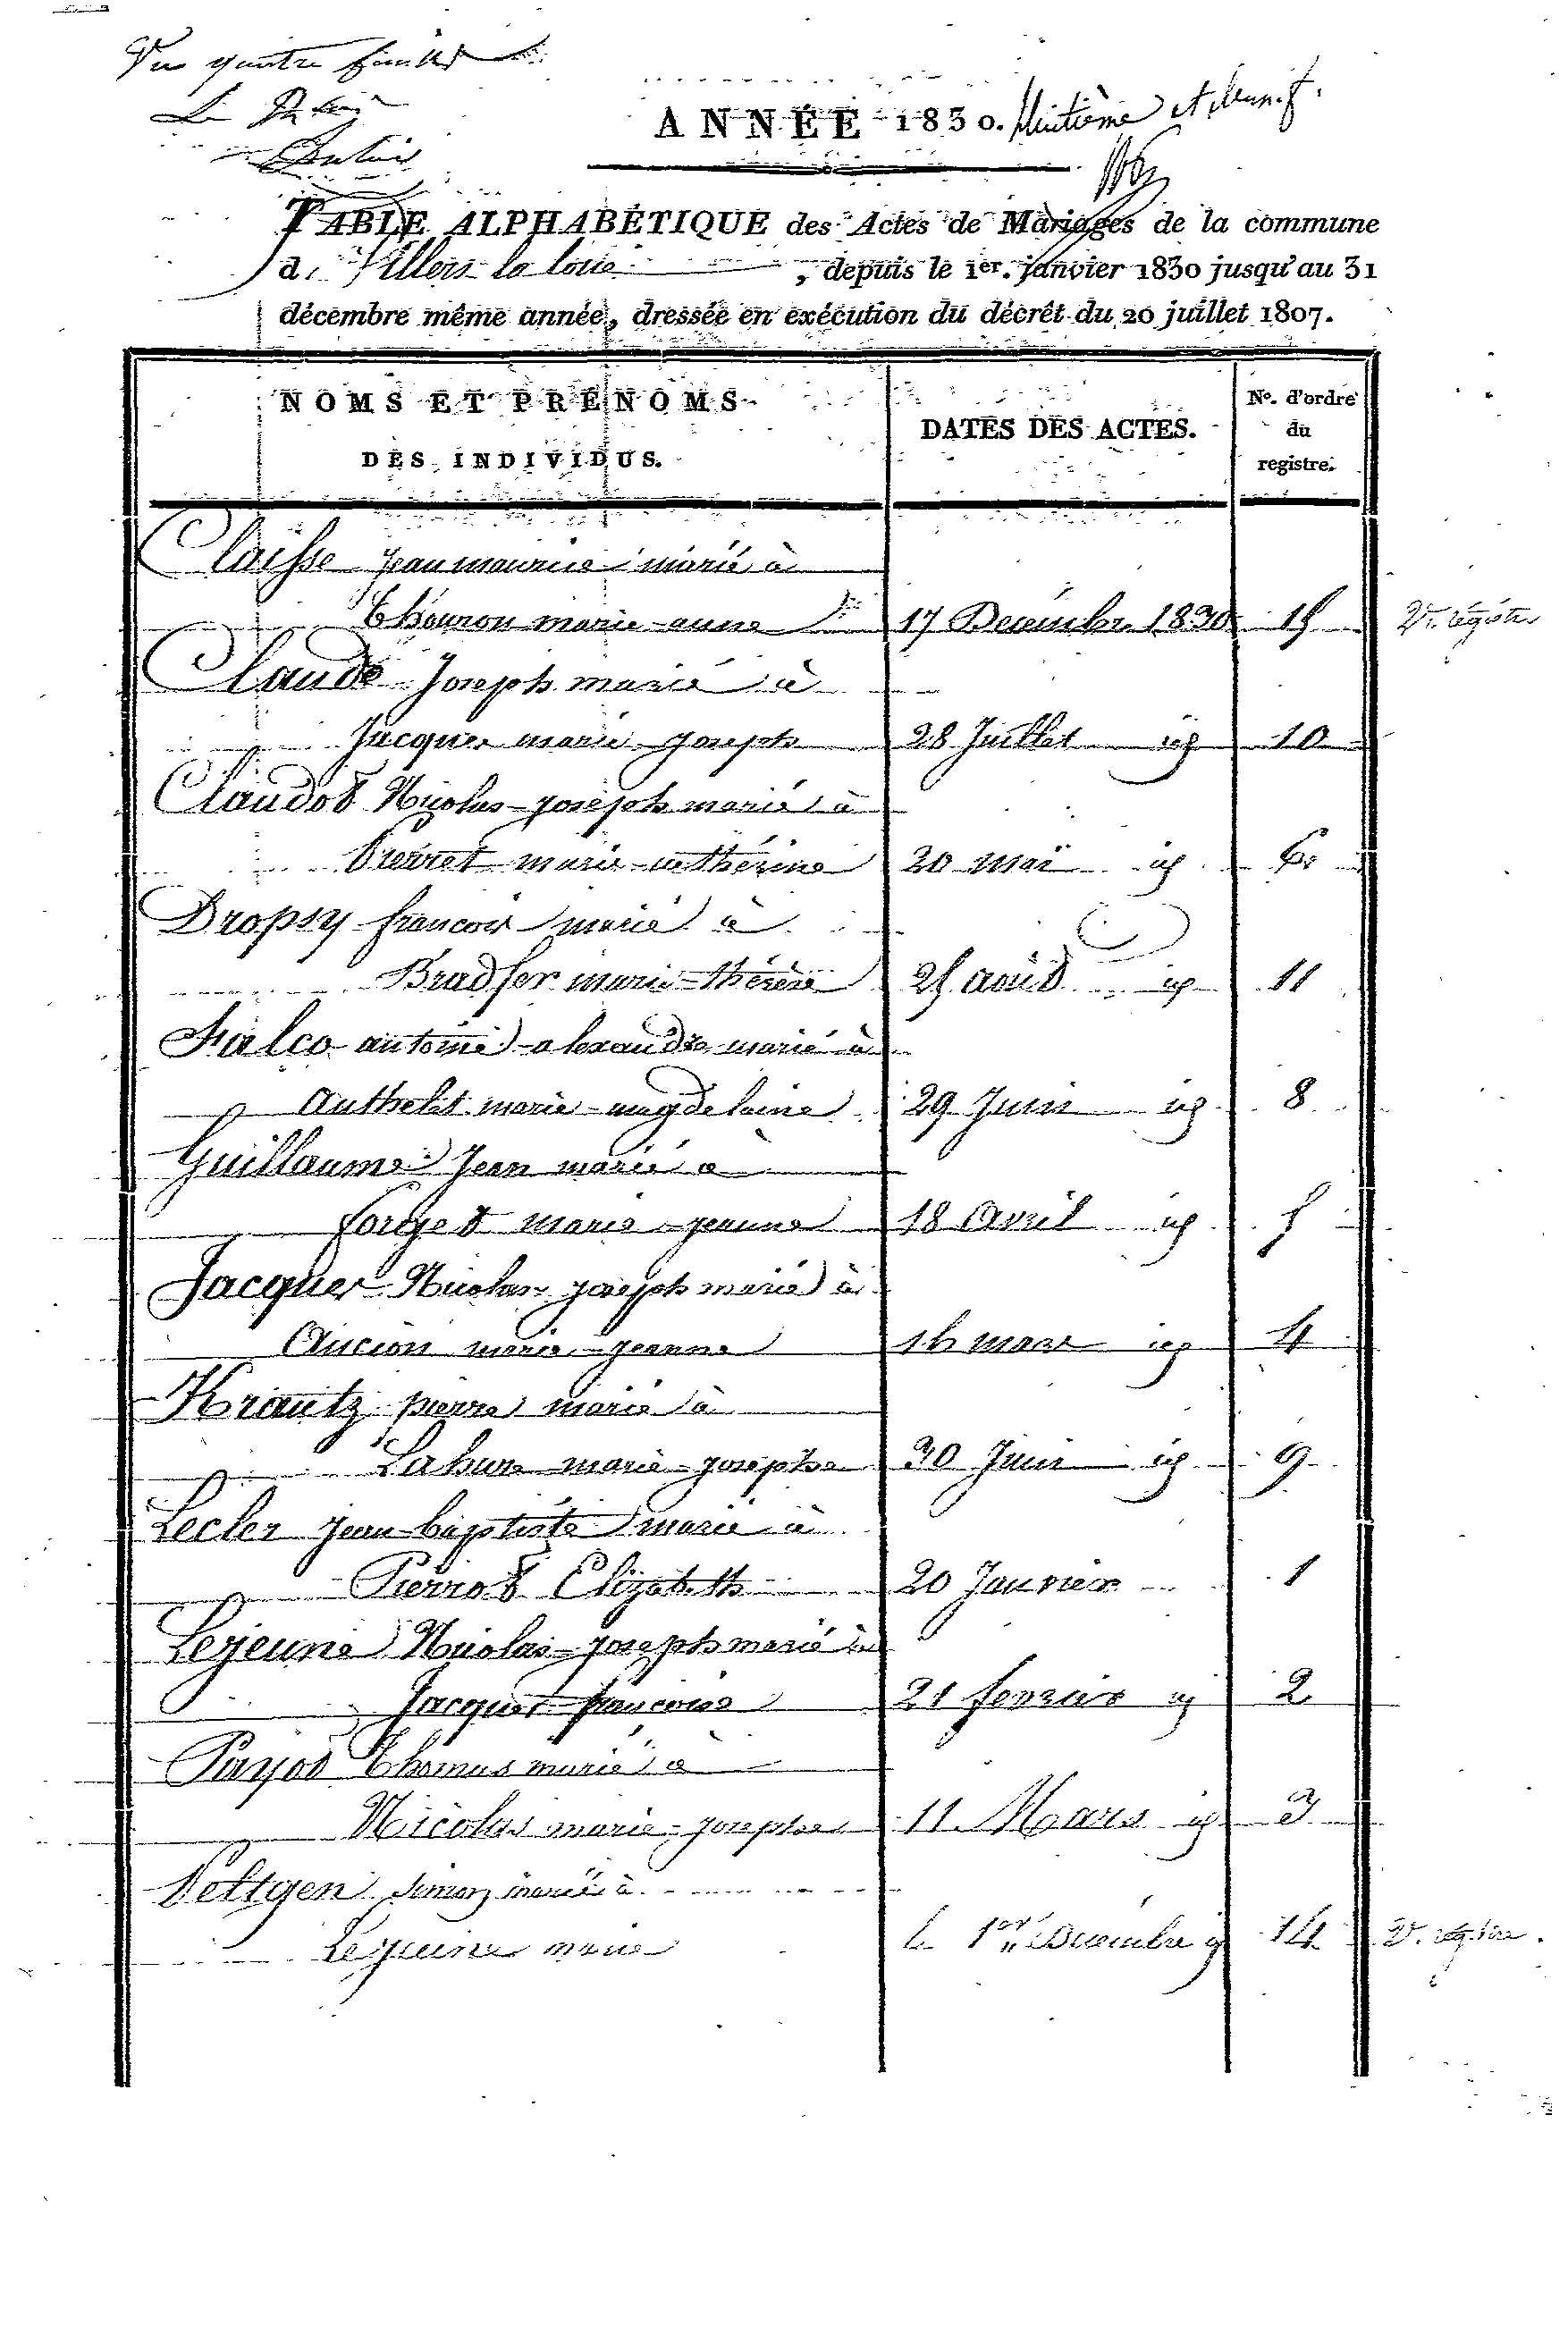 Vu quatre feuillets
Le
ANNÉE 1830. huitième et
TABLE ALPHABÉTIQUE des Actes de Mariages de la commune
d. Villers la loue, depuis le 1er. janvier 1830 jusqu'au 31
décembre même année, dressée en exécution du décrêt du 20 juillet 1807.
NOMS ET PRÉNOMS
DES INDIVIDUS.
DATES DES ACTES.
No. d'ordre
du
registre.
Claisse jean maurice marié à
Thouron marie-anne 17 Decembre 1830 15 2e. registre
Claude Joseph marié à
Jacques marie joseph 28 Juillet id 10
Claudot Nicolas-joseph marié à
Pierret marie-cathérine 20 mai id 6
Dropsy francois marié à
Bradfer marie-thérèse 25 août id 11
Falco antoine-alexandre marié à
Authelet marie-magdelaine 29 Juin id 8
Guillaume Jean marié à
forget marie-jeanne 18 avril id 5
Jacques Nicolas joseph marié à
Aucion marie-jeanne 16 mars id 4
Krautz pierre marié à
Lahure marie-josephe 30 Juin id 9
Lecler jean-baptiste marié à
Pierrot Elizabeth 20 Janvier 1
Lejeune Nicolas-joseph marié à
Jacques françoise 21 fevrier id 2
Payot Thomas marié à
Nicolas marie-josephe 11 Mars id 3
Veltgen Simon marié à
Lejeune marie le 1er Decembre id 14 2e. registre.